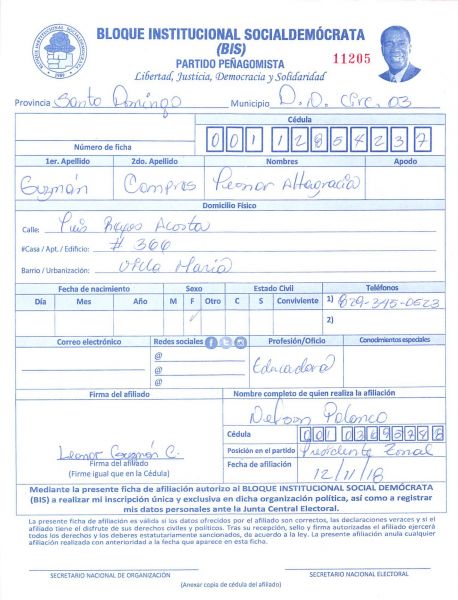 BLOQUE INSTITUCIONAL SOCIALDEMÓCRATA
(BIS)
PARTIDO PEÑAGOMISTA
Libertad, Justicia, Democracia y Solidaridad
11205
Provincia Santo Domingo Municipio D.N. Circ. 03
Cédula
Número de ficha 001 1285423 7
1er. Apellido 2do. Apellido Nombres Apodo
Guzmán Compres Leonor Altagracia
Domicilio Físico
Calle: Luis Reyes Acosta
#Casa / Apt. / Edificio: # 366
Barrio / Urbanización: Villa María
Fecha de nacimiento Sexo Estado Civil Teléfonos
Día Mes Año M F Otro C S Conviviente 1) 829-345-0523
2)
Correo electrónico Redes sociales Profesión/Oficio Conocimientos especiales
@
@
@
Educadora
Firma del afiliado Nombre completo de quien realiza la afiliación
Nelson Polanco
Cédula 001
Leonor Guzmán C. Posición en el partido Presidente Zonal
Firma del afiliado
(Firme igual que en la Cédula)
Fecha de afiliación 12/11/18
Mediante la presente ficha de afiliación autorizo al BLOQUE INSTITUCIONAL SOCIAL DEMÓCRATA
(BIS) a realizar mi inscripción única y exclusiva en dicha organización política, así como a registrar
mis datos personales ante la Junta Central Electoral.
La presente afiliación es válida si los datos ofrecidos por el afiliado son correctos, las declaraciones veraces y si el
afiliado tiene el disfrute de sus derechos civiles y políticos. Tras su recepción, sello y firma autorizadas el afiliado ejercerá
todos los derechos y los deberes estatutariamente sancionados, de acuerdo a la ley. La presente afiliación anula cualquier
afiliación realizada con anterioridad a la fecha que aparece en esta ficha.
SECRETARIO NACIONAL DE ORGANIZACIÓN SECRETARIO NACIONAL ELECTORAL
(Anexar copia de cédula del afiliado)